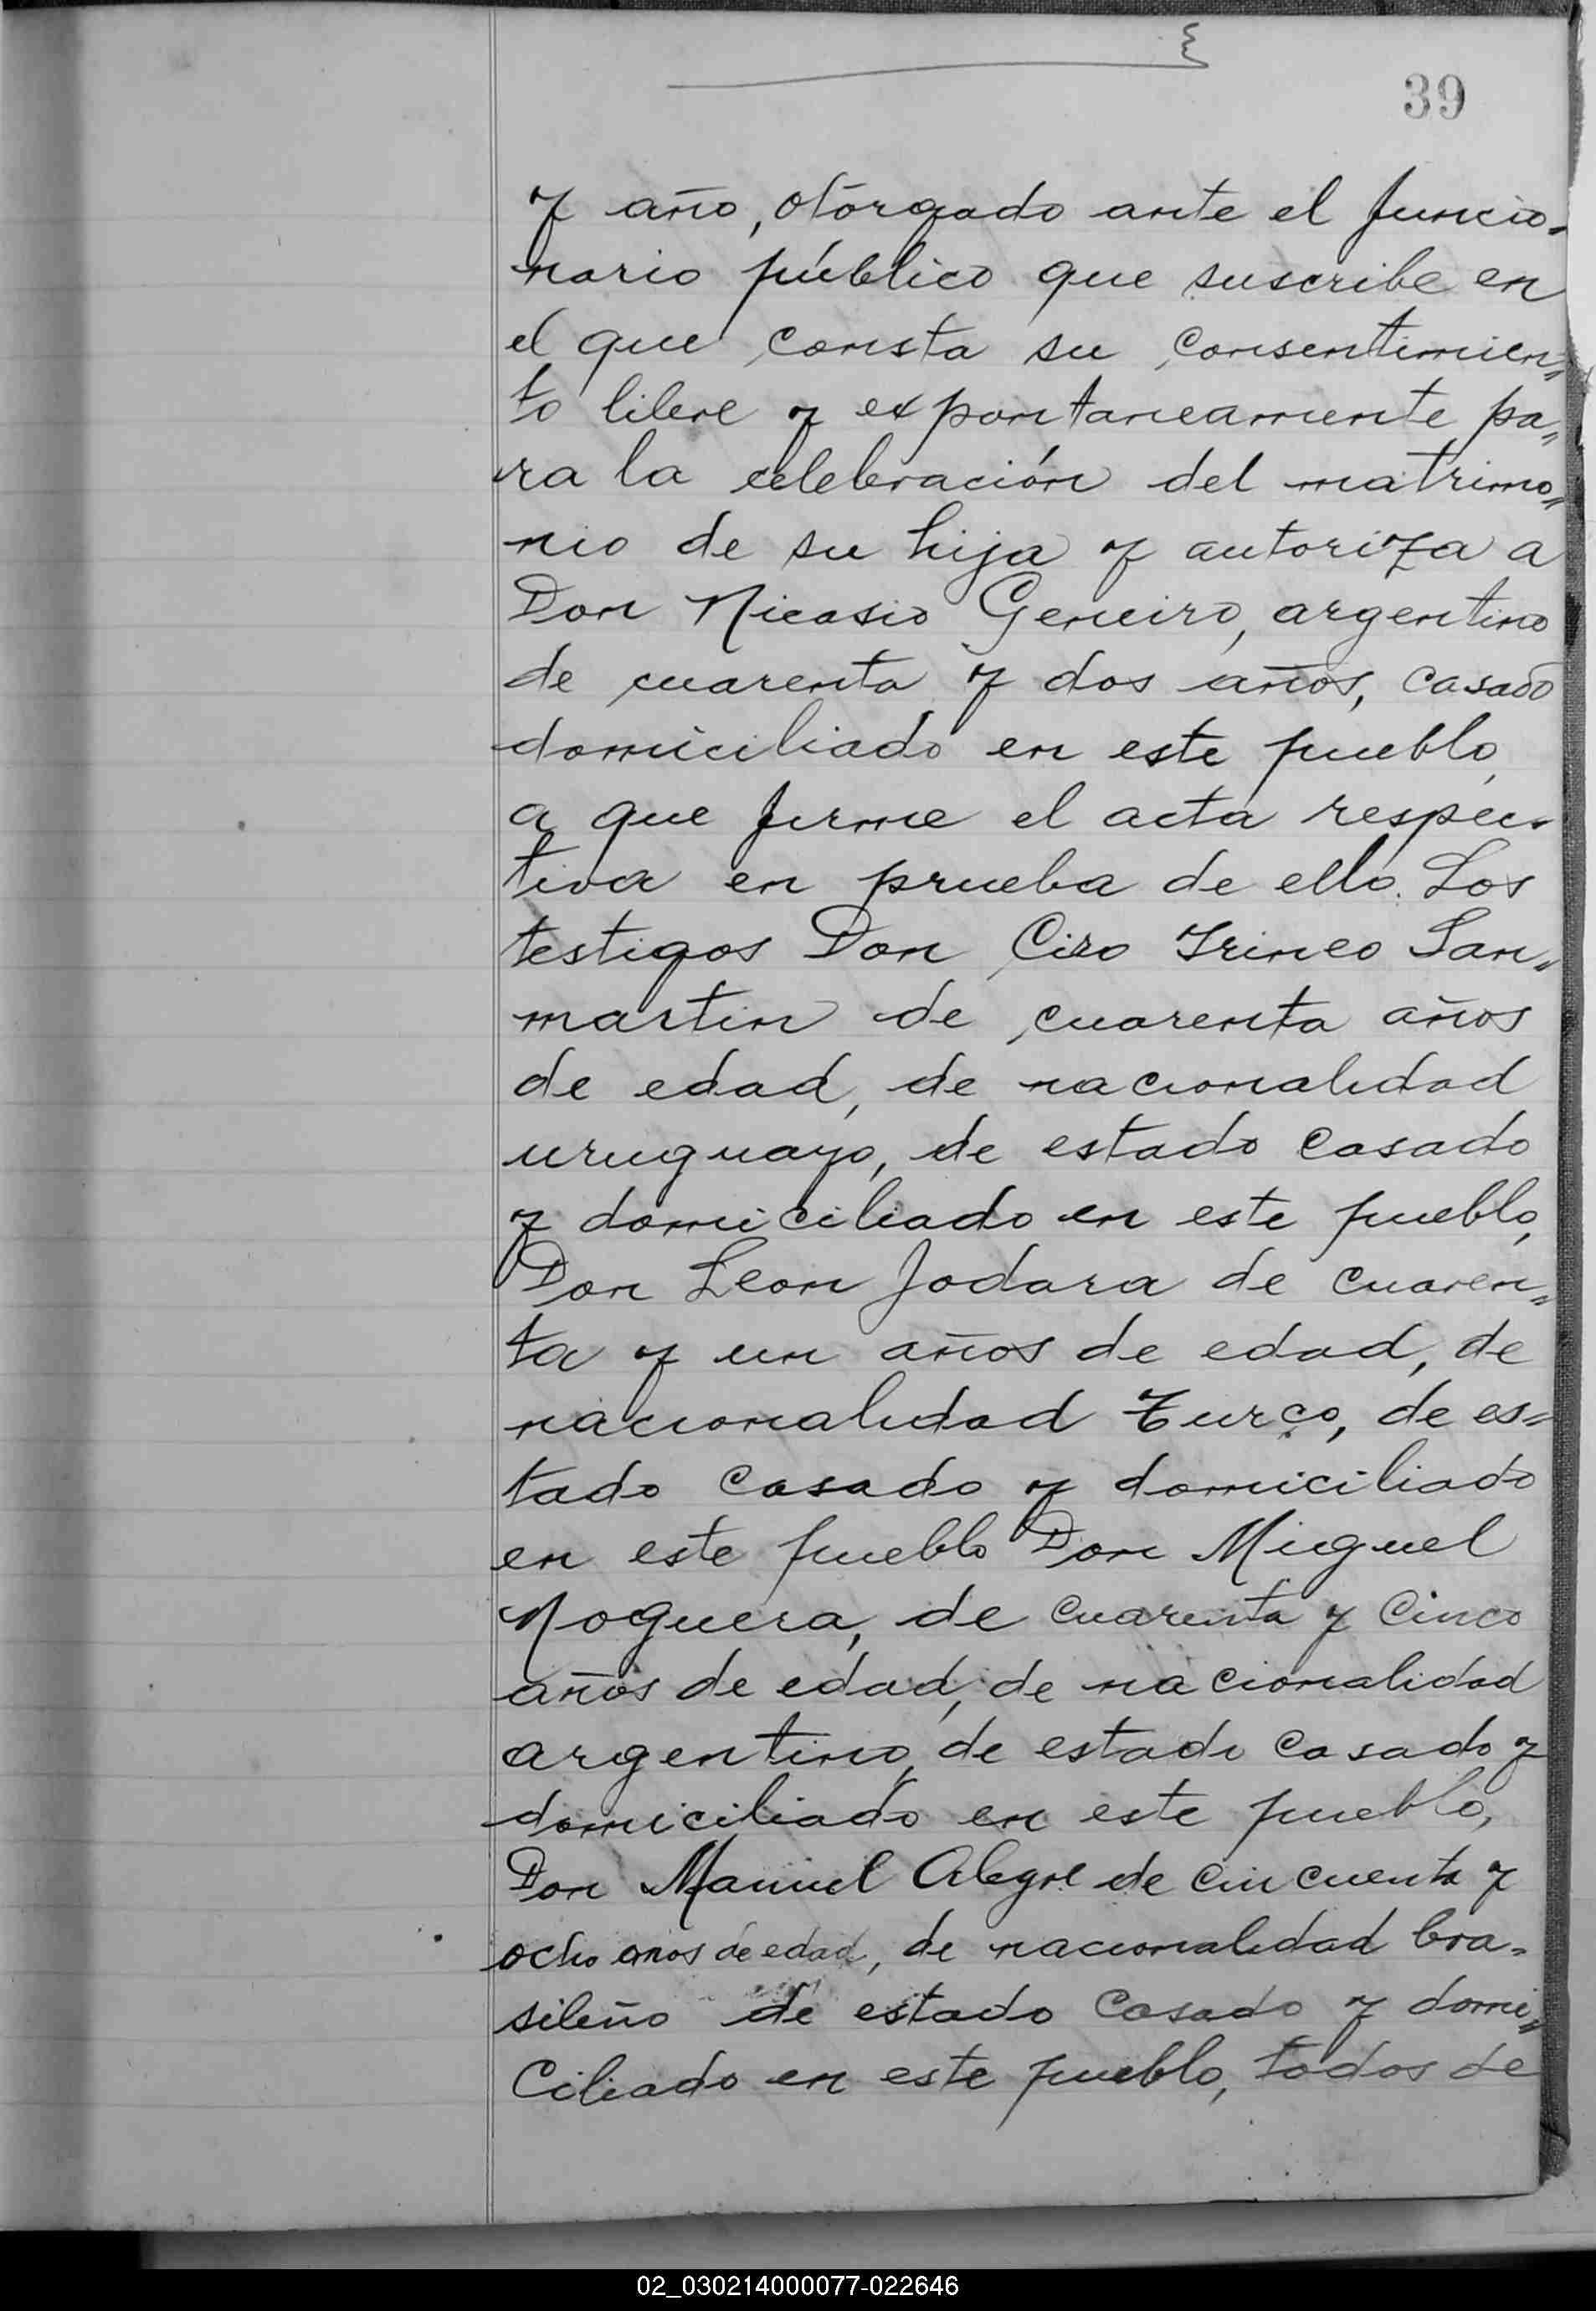 39
y año, otorgado ante el funcio-
nario público que suscribe en
el que consta su consentimien=
to libre y expontaneamente pa=
ra la celebración del matrimo=
nio de su hija y autoriza a
Don Nicasio Geneiro, argentino
de cuarenta y dos años, casado
domiciliado en este pueblo,
a que firme el acta respec-
tiva en prueba de ello. Los
testigos Don Ciro Irineo San=
martin de cuarenta años
de edad, de nacionalidad
uruguayo, de estado casado
y domiciliado en este pueblo,
Don Leon Jodara de cuaren=
ta y un años de edad, de
nacionalidad Turco, de es=
tado casado y domiciliado
en este pueblo Don Miguel
Noguera, de cuarenta y cinco
años de edad, de nacionalidad
argentino, de estado casado y
domiciliado en este pueblo,
Don Manuel Alegre de cincuenta y
ocho anos de edad, de nacionalidad bra=
sileño de estado casado y domi=
ciliado en este pueblo, todos de
02_030214000077-022646